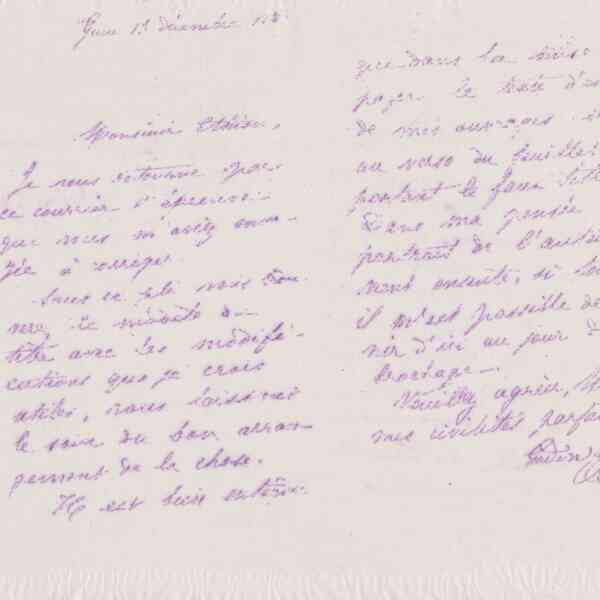 13 décembre
Monsieur
Je vous retourne par
ce courrier l'épreuve
que vous m'avez envo-
yée à corriger.
Sous ce pli vous trou-
verez le modèle de
titre avec les modifi-
cations que je crois
utiles, vous laissant
le soin du bon arran-
gement de la chose.
Il est bien entendu
que dans la mise
page le
de mes ouvrages
au verso du feuillet
portant le faux titre
Dans ma pensée
portrait de l'auteu
vient ensuite, si
il m'est possible de
nir d'ici au jour d
brochage.
Veuillez agréer, M
mes civilités parfai